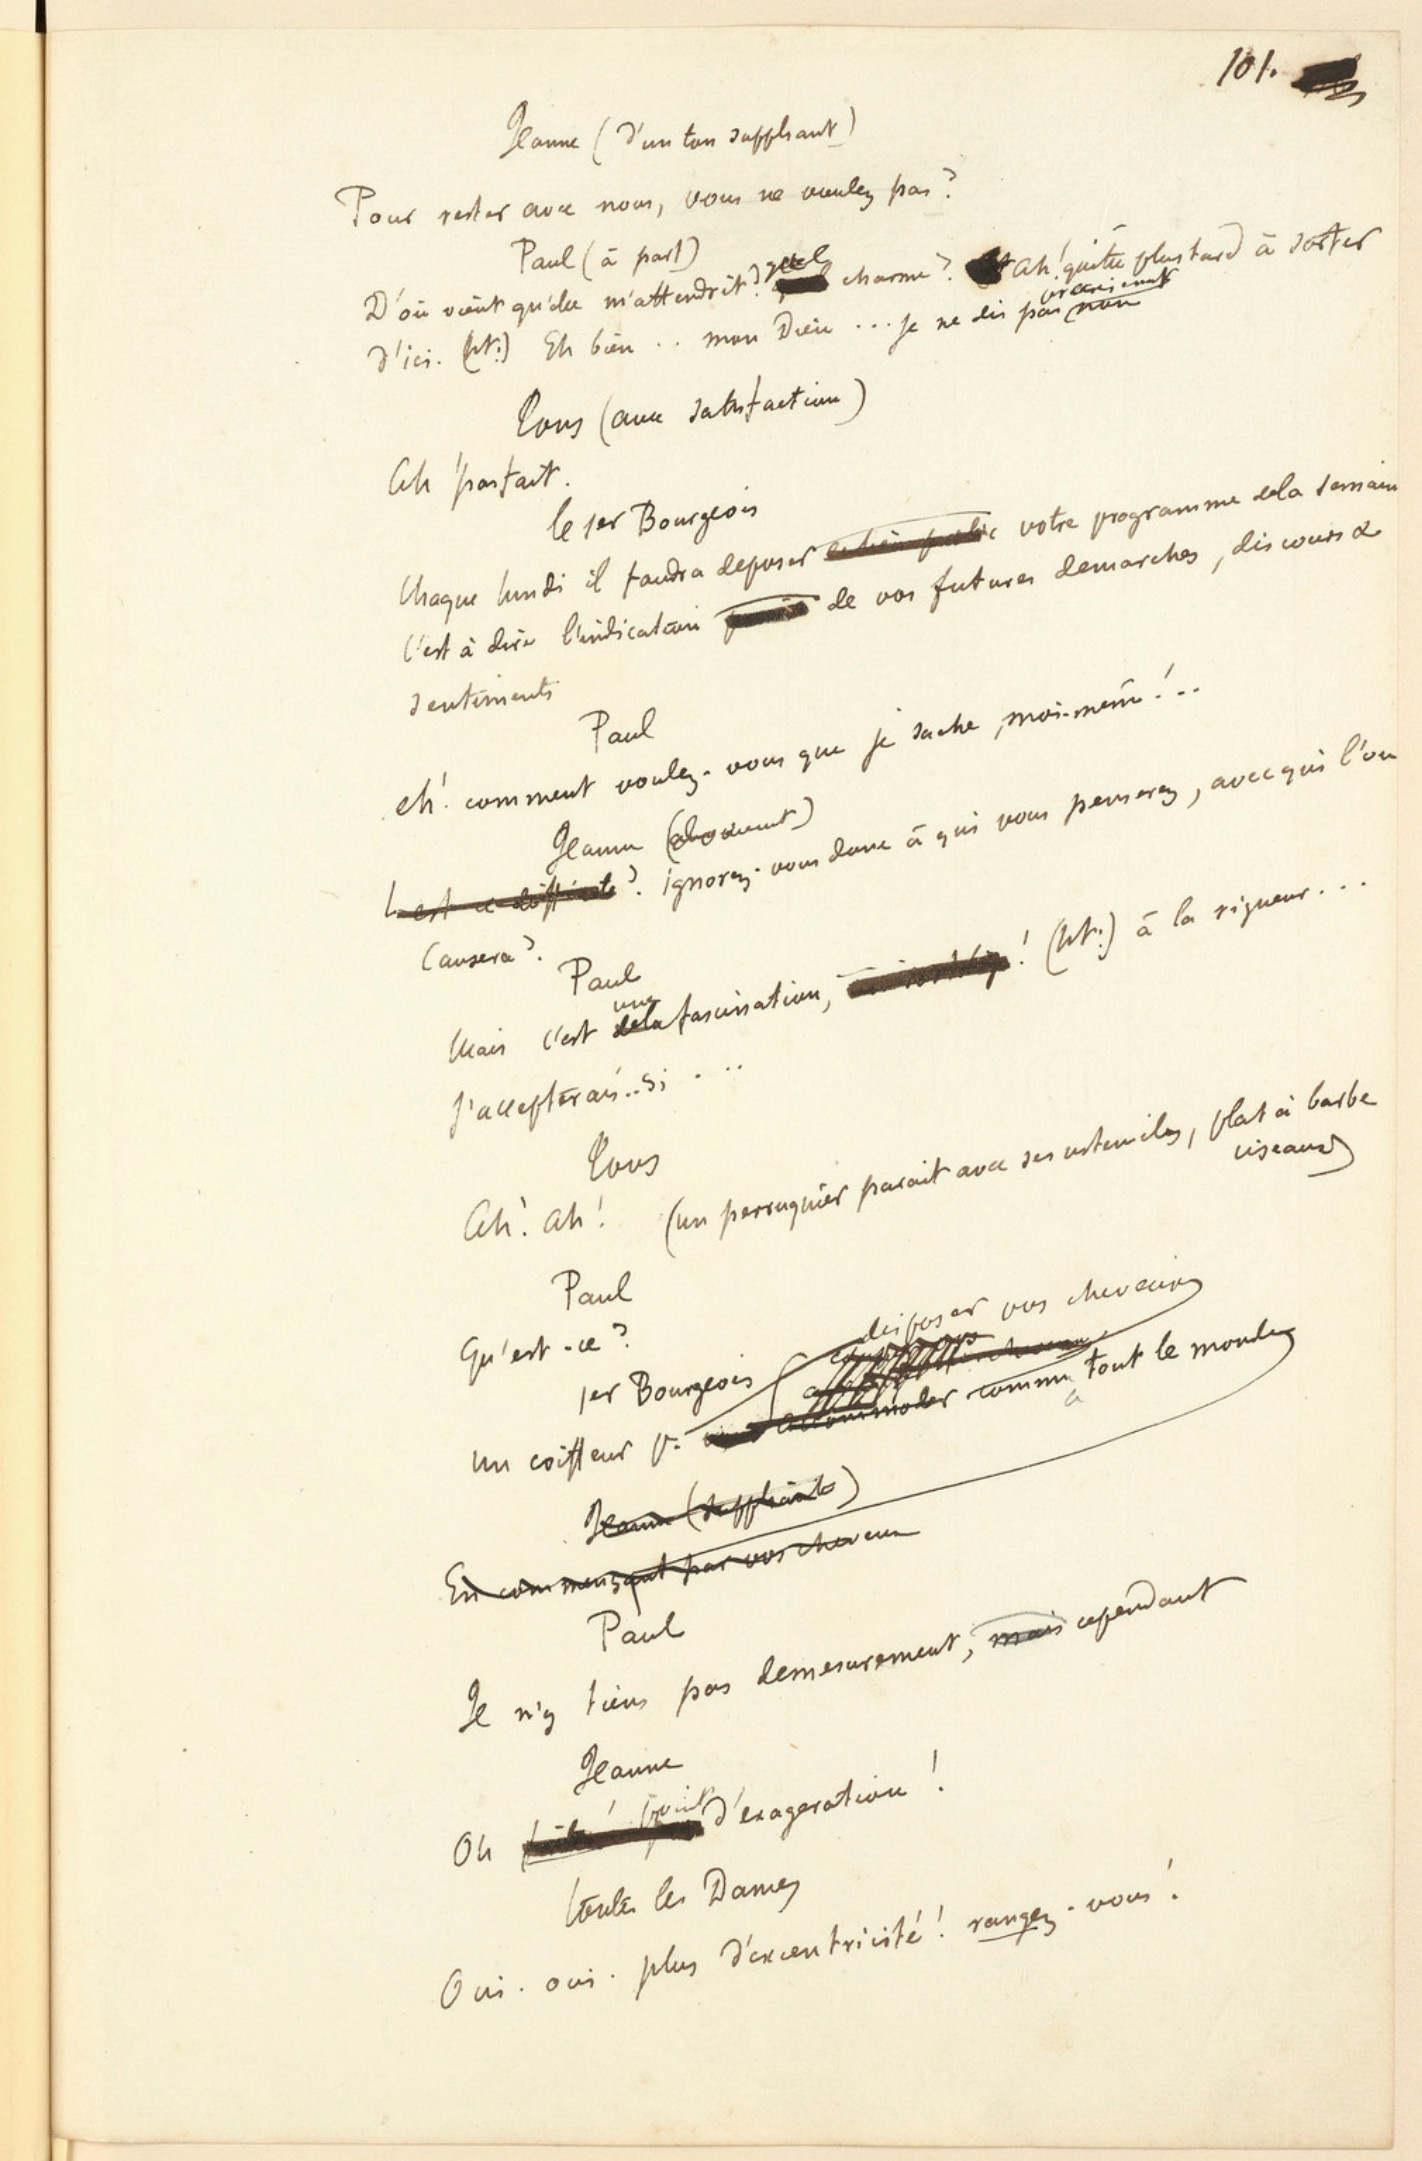 101.
Jeanne (d'un ton suppliant)
Pour rester avec nous, vous ne voulez pas?
Paul (à part)
D'où vient qu'elle m'attendrit? quel charme? Ah! quitte plus tard à sortir
d'ici. (ht:) Eh bien .. mon Dieu ... je ne dis pas non
Tous (avec satisfaction)
Ah! parfait.
le 1er Bourgeois
Chaque lundi il faudra deposer votre programme dela semain
C'est à dire l'indication de vos futures demarches, discours &
sentiments
Paul
eh! comment voulez-vous que je sache, moi-même! ..
Jeanne
est ce difficile? ignorez-vous donc à qui vous penserez, avec qui l'on
Causera?.
Paul
Mais c'est une dela fascination, ! (ht:) à la rigueur...
J'accepterais..si . ..
Tous
Ah! ah! (un perruquier parait avec ses ustensiles, plat à barbe
ciseaux)
Paul
Qu'est-ce?
disposer vos cheveux
1er Bourgeois
un coiffeur p. accommoder comme à tout le monde
Jeanne (suppliante)
En commençant par vos cheveux
Paul
Je n'y tiens pas demesurement, mais cependant
Jeanne
point
Oh ! d'exageration!
toutes les Dames
Oui. oui. plus d'excentricité! rangez-vous!